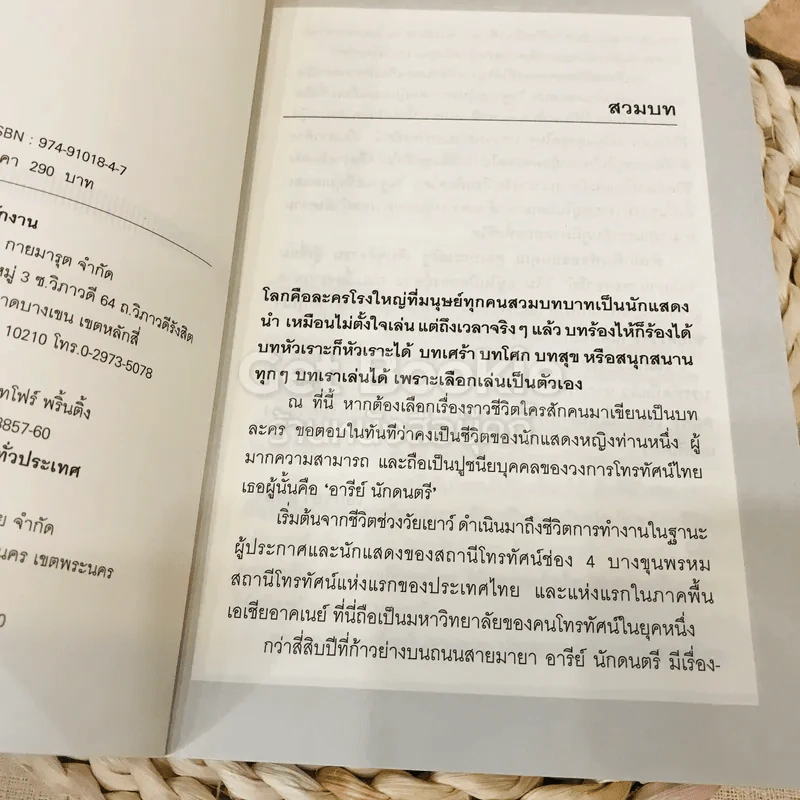 ISBN : 974-91018-4-7
290 บาท
กายมารุต จำกัด
หมู่ 3 ซ.วิภาวดี 64 ถ.วิภาวดีรังสิต
บางเขน เขตหลักสี่
10210 โทร.0-2973-5078
พริ้นติ้ง
8857-60
ทั่วประเทศ
จำกัด
เขตพระนคร
สวมบท
โลกคือละครโรงใหญ่ที่มนุษย์ทุกคนสวมบทบาทเป็นนักแสดง
นำ เหมือนไม่ตั้งใจเล่น แต่ถึงเวลาจริงๆ แล้ว บทร้องไห้ก็ร้องได้
บทหัวเราะก็หัวเราะได้ บทเศร้า บทโศก บทสุข หรือสนุกสนาน
ทุกๆ บทเราเล่นได้ เพราะเลือกเล่นเป็นตัวเอง
ณ ที่นี้ หากต้องเลือกเรื่องราวชีวิตใครสักคนมาเขียนเป็นบท
ละคร ขอตอบในทันทีว่าคงเป็นชีวิตของนักแสดงหญิงท่านหนึ่ง ผู้
มากความสามารถ และถือเป็นปูชนียบุคคลของวงการโทรทัศน์ไทย
เธอผู้นั้นคือ 'อารีย์ นักดนตรี'
เริ่มต้นจากชีวิตช่วงวัยเยาว์ ดำเนินมาถึงชีวิตการทำงานในฐานะ
ผู้ประกาศและนักแสดงของสถานีโทรทัศน์ช่อง 4 บางขุนพรหม
สถานีโทรทัศน์แห่งแรกของประเทศไทย และแห่งแรกในภาคพื้น
เอเชียอาคเนย์ ที่นี่ถือเป็นมหาวิทยาลัยของคนโทรทัศน์ในยุคหนึ่ง
กว่าสี่สิบปีที่ก้าวย่างบนถนนสายมายา อารีย์ นักดนตรี มีเรื่อง-